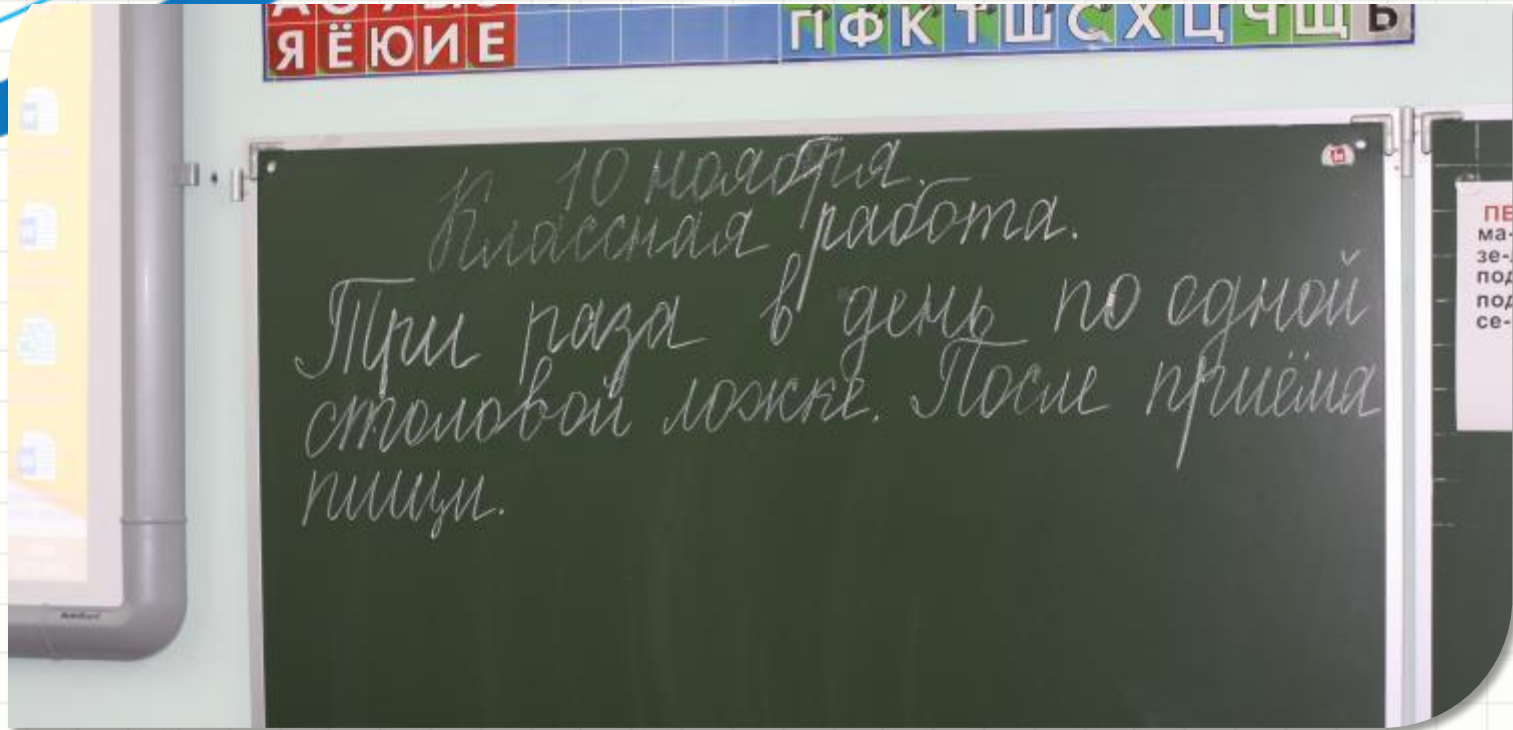 Я Ё Ю И Е
П Ф К Т Ш С Х Ц Ч Щ Ь
10 ноября.
Классная работа.
Три раза в день по одной
столовой ложке. После приёма
пищи.
ПЕ
ма-
зе-
под
под
се-